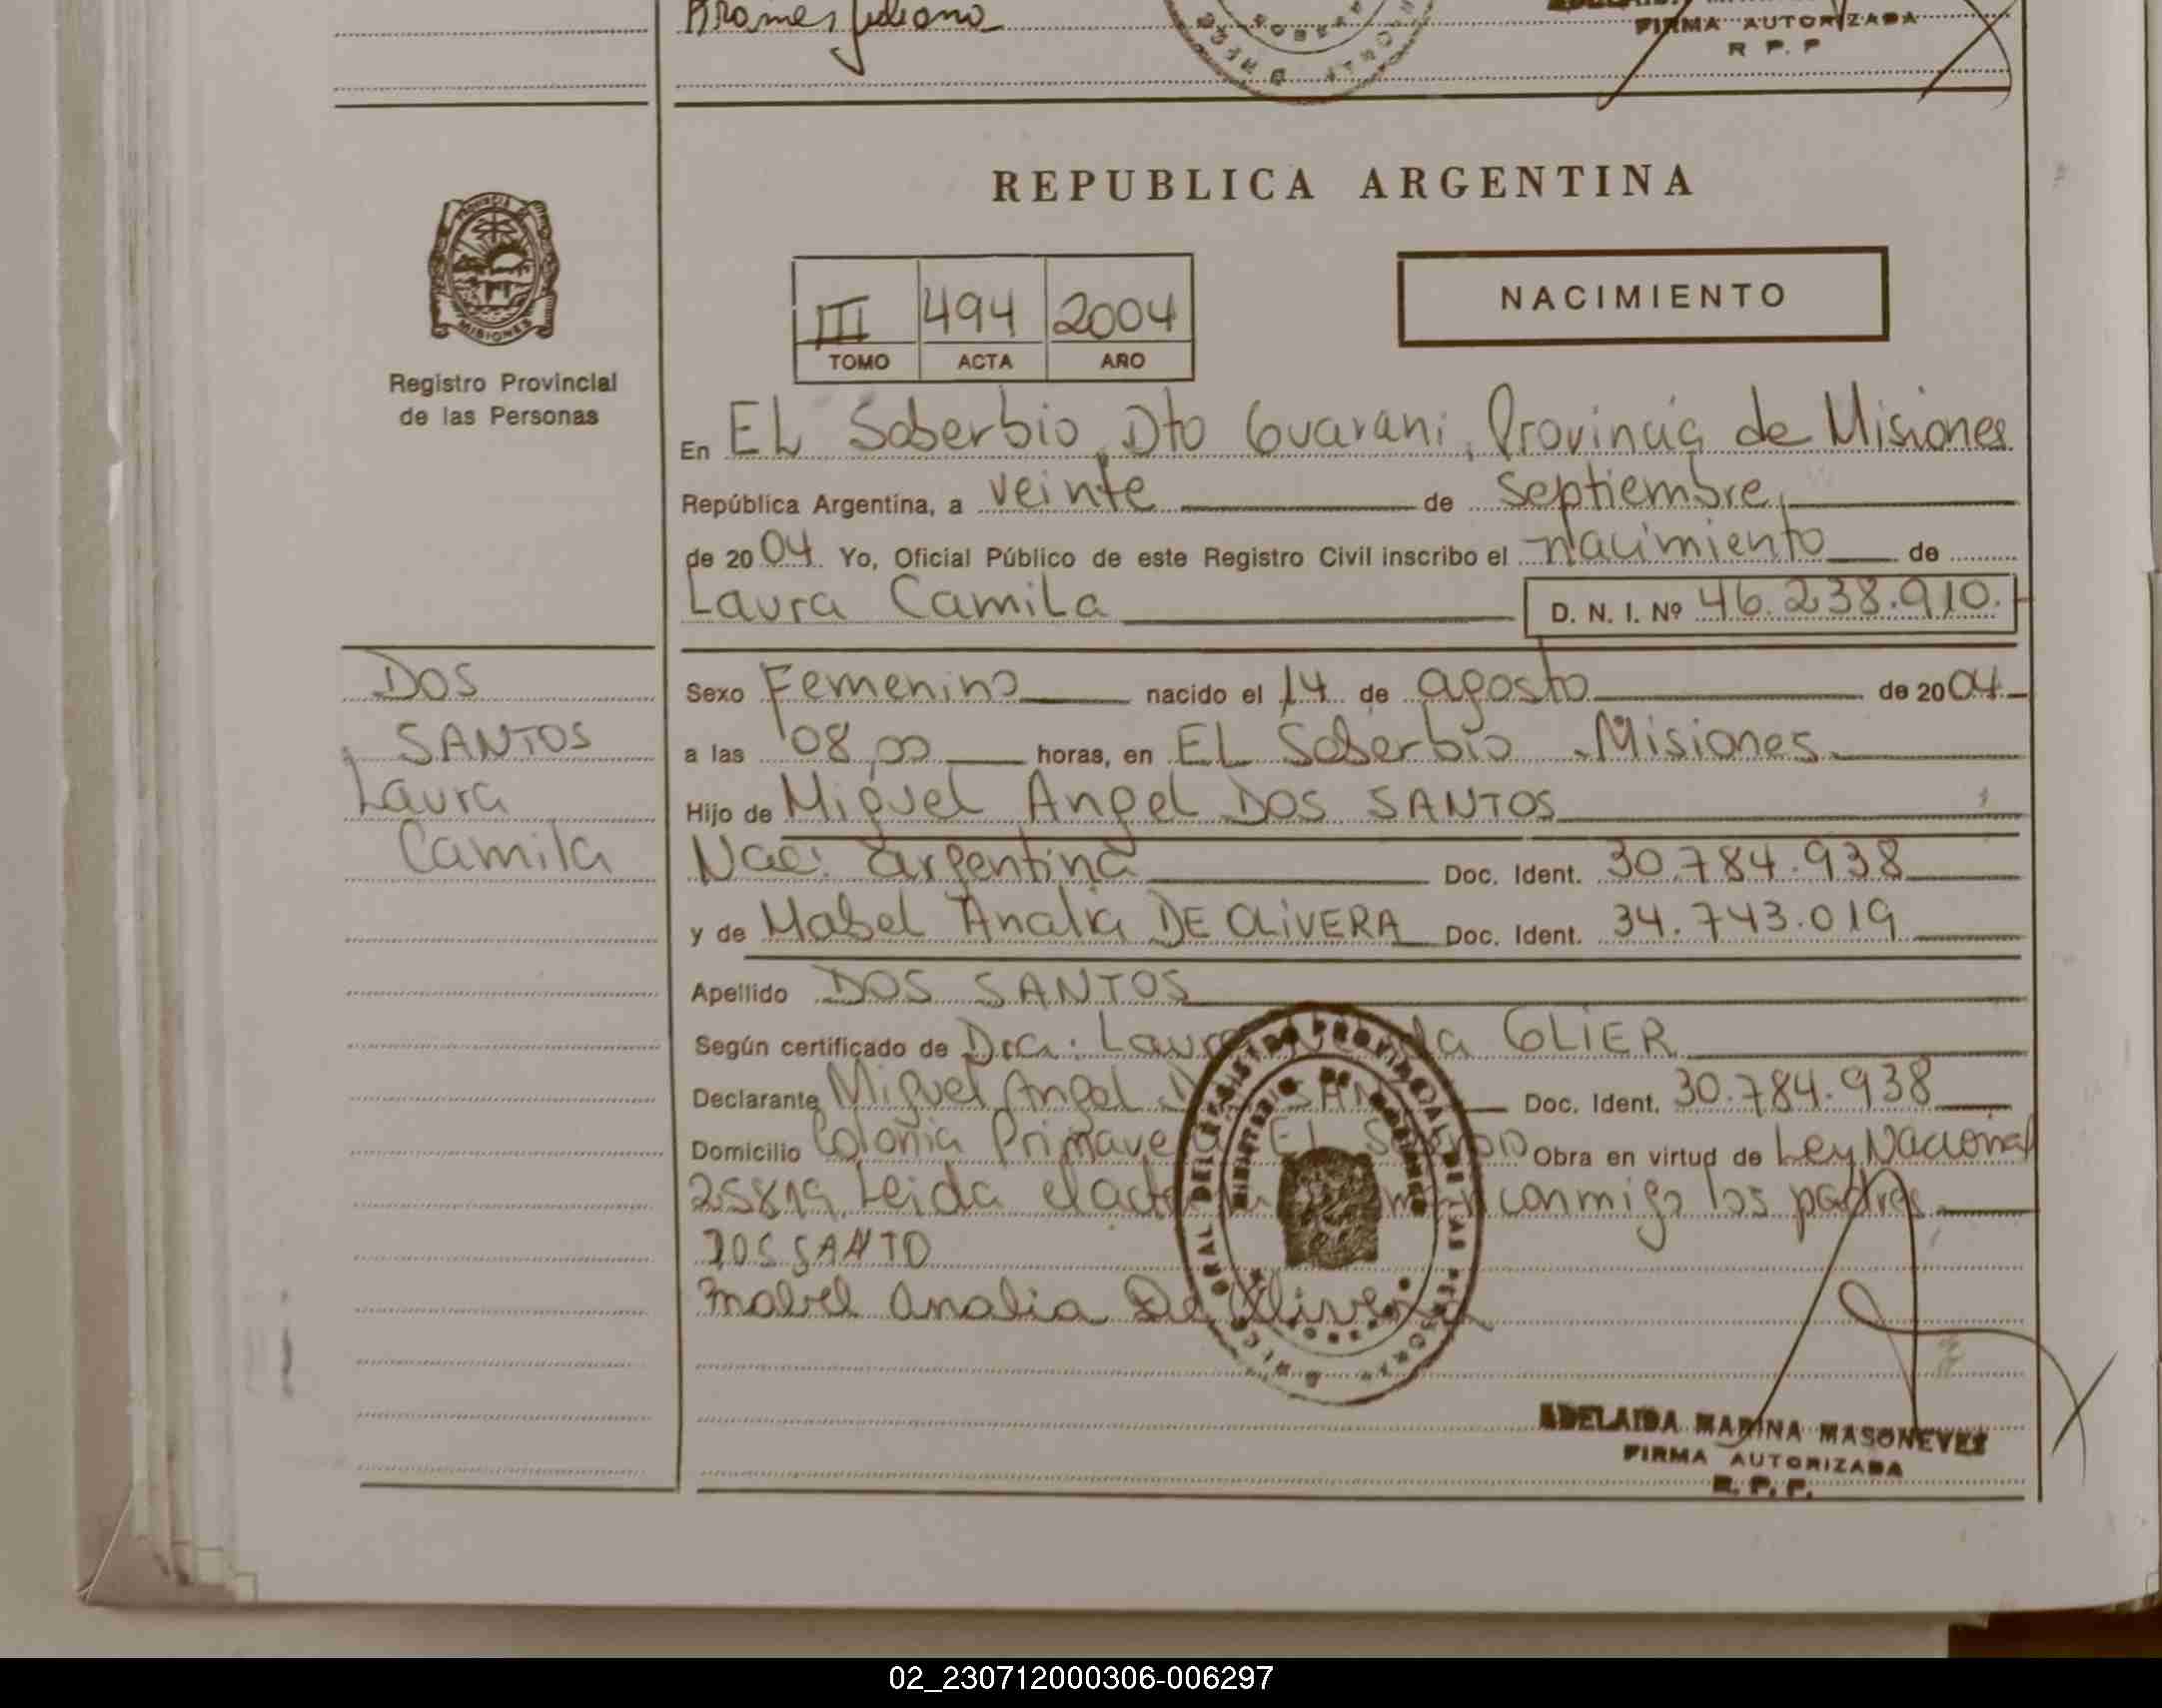 Juliano
FIRMA AUTORIZADA
R P. P
REPUBLICA ARGENTINA
PROVINCIA DE
MISIONES
Registro Provincial
de las Personas
III 494 2004
TOMO ACTA AÑO
NACIMIENTO
En EL Soberbio, Dto Guarani, Provincia de Misiones
República Argentina, a veinte de Septiembre,
de 2004. Yo, Oficial Público de este Registro Civil inscribo el nacimiento de
Laura Camila D. N. I. Nº 46.238.910.
DOS
SANTOS
Laura
Camila
Sexo Femenino nacido el 14 de agosto de 2004
a las 08,00 horas, en EL Soberbio - Misiones
Hijo de Miguel Angel DOS SANTOS
Nac: argentina Doc. Ident. 30.784.938
y de Mabel Analia DE OLiVERA Doc. Ident. 34.743.019
Apellido DOS SANTOS
Según certificado de Dra. Laura GLIER
Declarante Miguel Angel DOS SANTOS Doc. Ident. 30.784.938
Domicilio Colonia Primavera EL Soberbio Obra en virtud de Ley Nacional
25819. Leida el acta conmigo los padres
DOS SANTO
Mabel Analia De Olivera
DIRECCION GENERAL DEL REGISTRO PROVINCIAL DE LAS PERSONAS
MINISTERIO DE GOBIERNO
ADELAIDA MARINA MASONEVES
FIRMA AUTORIZADA
R. P. P.
02_230712000306-006297